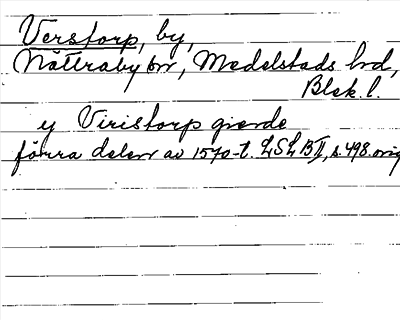 Verstorp, by,
Nättraby sn, Medelstads hrd,
Blek. l.
y Viristorp gierde
förra delen av 1570-t. LSL B II, s. 498. orig